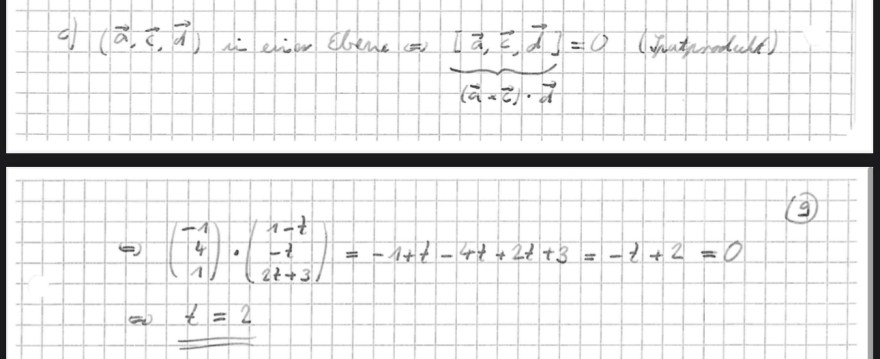 c) (a⃗, c⃗, d⃗) in einer Ebene ⇔ [a⃗, c⃗, d⃗] = 0 (Spatprodukt)
(a⃗ × c⃗) · d⃗
(9)
⇔ (-1 4 1) · (1-t -t 2t+3) = -1+t - 4t + 2t + 3 = -t + 2 = 0
⇔ t = 2